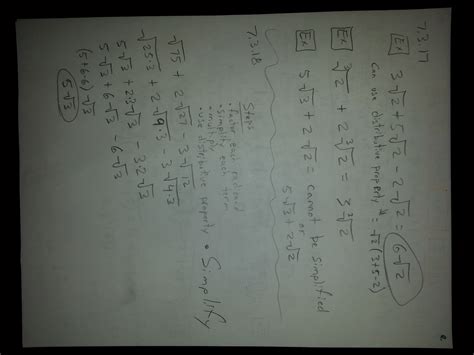 7.3.17
Ex 3√2 + 5√2 - 2√2 = 6√2
can use distributive property = √2(3+5-2)
Ex ∛2 + 2∛2 = 3∛2
Ex 5√3 + 2√2 = cannot be simplified
or
5√3 + 2√2
7.3.18
Steps
• factor each radicand
• simplify each term
• multiply
• use distributive property • Simplify
√75 + 2√27 - 3√12
√25·3 + 2√9·3 - 3√4·3
5√3 + 2·3√3 - 3·2√3
5√3 + 6√3 - 6√3
(5+6-6)√3
5√3